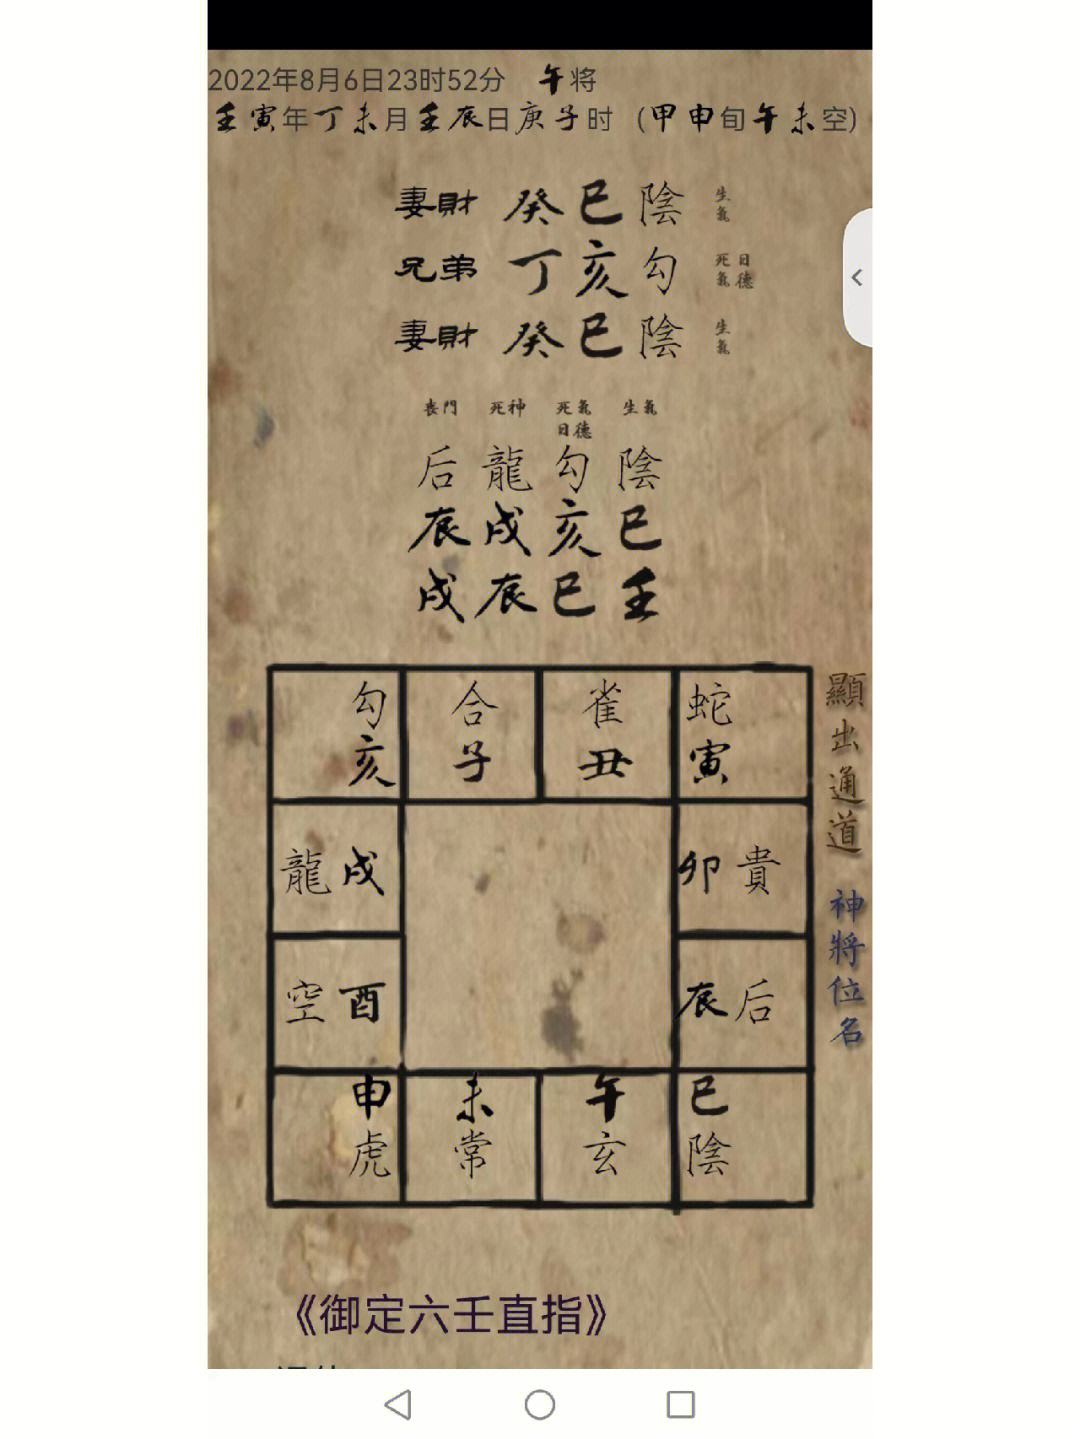 2022年8月6日23时52分 午将
壬寅年丁未月壬辰日庚子时 (甲申旬午未空)
妻財 癸巳陰 生氣
兄弟 丁亥勾 死氣 日德
妻財 癸巳陰 生氣
喪門 死神 死氣 生氣
日德
后龍勾陰
辰戌亥巳
戌辰巳壬
勾 合 雀 蛇
亥 子 丑 寅
龍戌 卯貴
空酉 辰后
申 未 午 巳
虎 常 玄 陰
顯出通道 神將位名
《御定六壬直指》